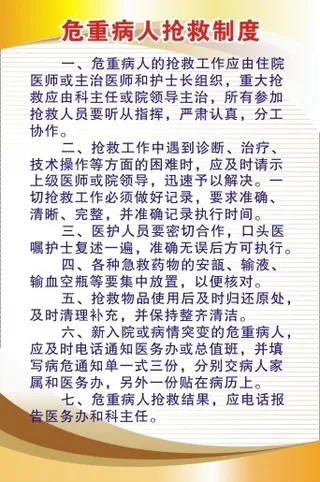 危重病人抢救制度
一、危重病人的抢救工作应由住院
医师或主治医师和护士长组织，重大抢
救应由科主任或院领导主治，所有参加
抢救人员要听从指挥，严肃认真，分工
协作。
二、抢救工作中遇到诊断、治疗、
技术操作等方面的困难时，应及时请示
上级医师或院领导，迅速予以解决。一
切抢救工作必须做好记录，要求准确、
清晰、完整，并准确记录执行时间。
三、医护人员要密切合作，口头医
嘱护士复述一遍，准确无误后方可执行。
四、各种急救药物的安瓿、输液、
输血空瓶等要集中放置，以便核对。
五、抢救物品使用后及时归还原处，
及时清理补充，并保持整齐清洁。
六、新入院或病情突变的危重病人，
应及时电话通知医务办或总值班，并填
写病危通知单一式三份，分别交病人家
属和医务办，另外一份贴在病历上。
七、危重病人抢救结果，应电话报
告医务办和科主任。